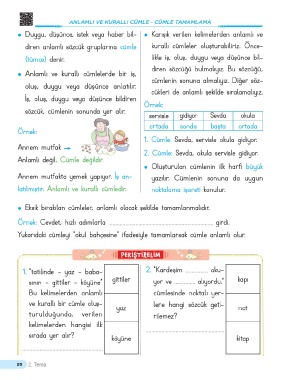 ANLAMLI VE KURALLI CÜMLE - CÜMLE TAMAMLAMA
• Duygu, düşünce, istek veya haber bil-
diren anlamlı sözcük gruplarına cümle
(tümce) denir.
• Anlamlı ve kurallı cümlelerde bir iş,
oluş, duygu veya düşünce anlatılır.
İş, oluş, duygu veya düşünce bildiren
sözcük, cümlenin sonunda yer alır.
Örnek:
Annem mutfak
Anlamlı değil. Cümle değildir.
Annem mutfakta yemek yapıyor. İş an-
latılmıştır. Anlamlı ve kurallı cümledir.
• Karışık verilen kelimelerden anlamlı ve
kurallı cümleler oluşturabiliriz. Önce-
likle iş, oluş, duygu veya düşünce bil-
diren sözcüğü bulmalıyız. Bu sözcüğü,
cümlenin sonuna almalıyız. Diğer söz-
cükleri de anlamlı şekilde sıralamalıyız.
Örnek:
servisle gidiyor Sevda okula
ortada sonda başta ortada
1. Cümle: Sevda, servisle okula gidiyor.
2. Cümle: Sevda, okula servisle gidiyor.
• Oluşturulan cümlenin ilk harfi büyük
yazılır. Cümlenin sonuna da uygun
noktalama işareti konulur.
• Eksik bırakılan cümleler, anlamlı olacak şekilde tamamlanmalıdır.
Örnek: Cevdet, hızlı adımlarla ........................ girdi.
Yukarıdaki cümleyi "okul bahçesine" ifadesiyle tamamlarsak cümle anlamlı olur.
PEKİŞTİRELİM
1. "tatilinde - yaz - baba-
sının - gittiler - köyüne"
Bu kelimelerden anlamlı
ve kurallı bir cümle oluş-
turulduğunda, verilen
kelimelerden hangisi ilk
sırada yer alır?
gittiler
yaz
köyüne
2. "Kardeşim ............ oku-
yor ve ............ alıyordu."
cümlesinde noktalı yer-
lere hangi sözcük geti-
rilemez?
kapı
not
kitap
2. Tema